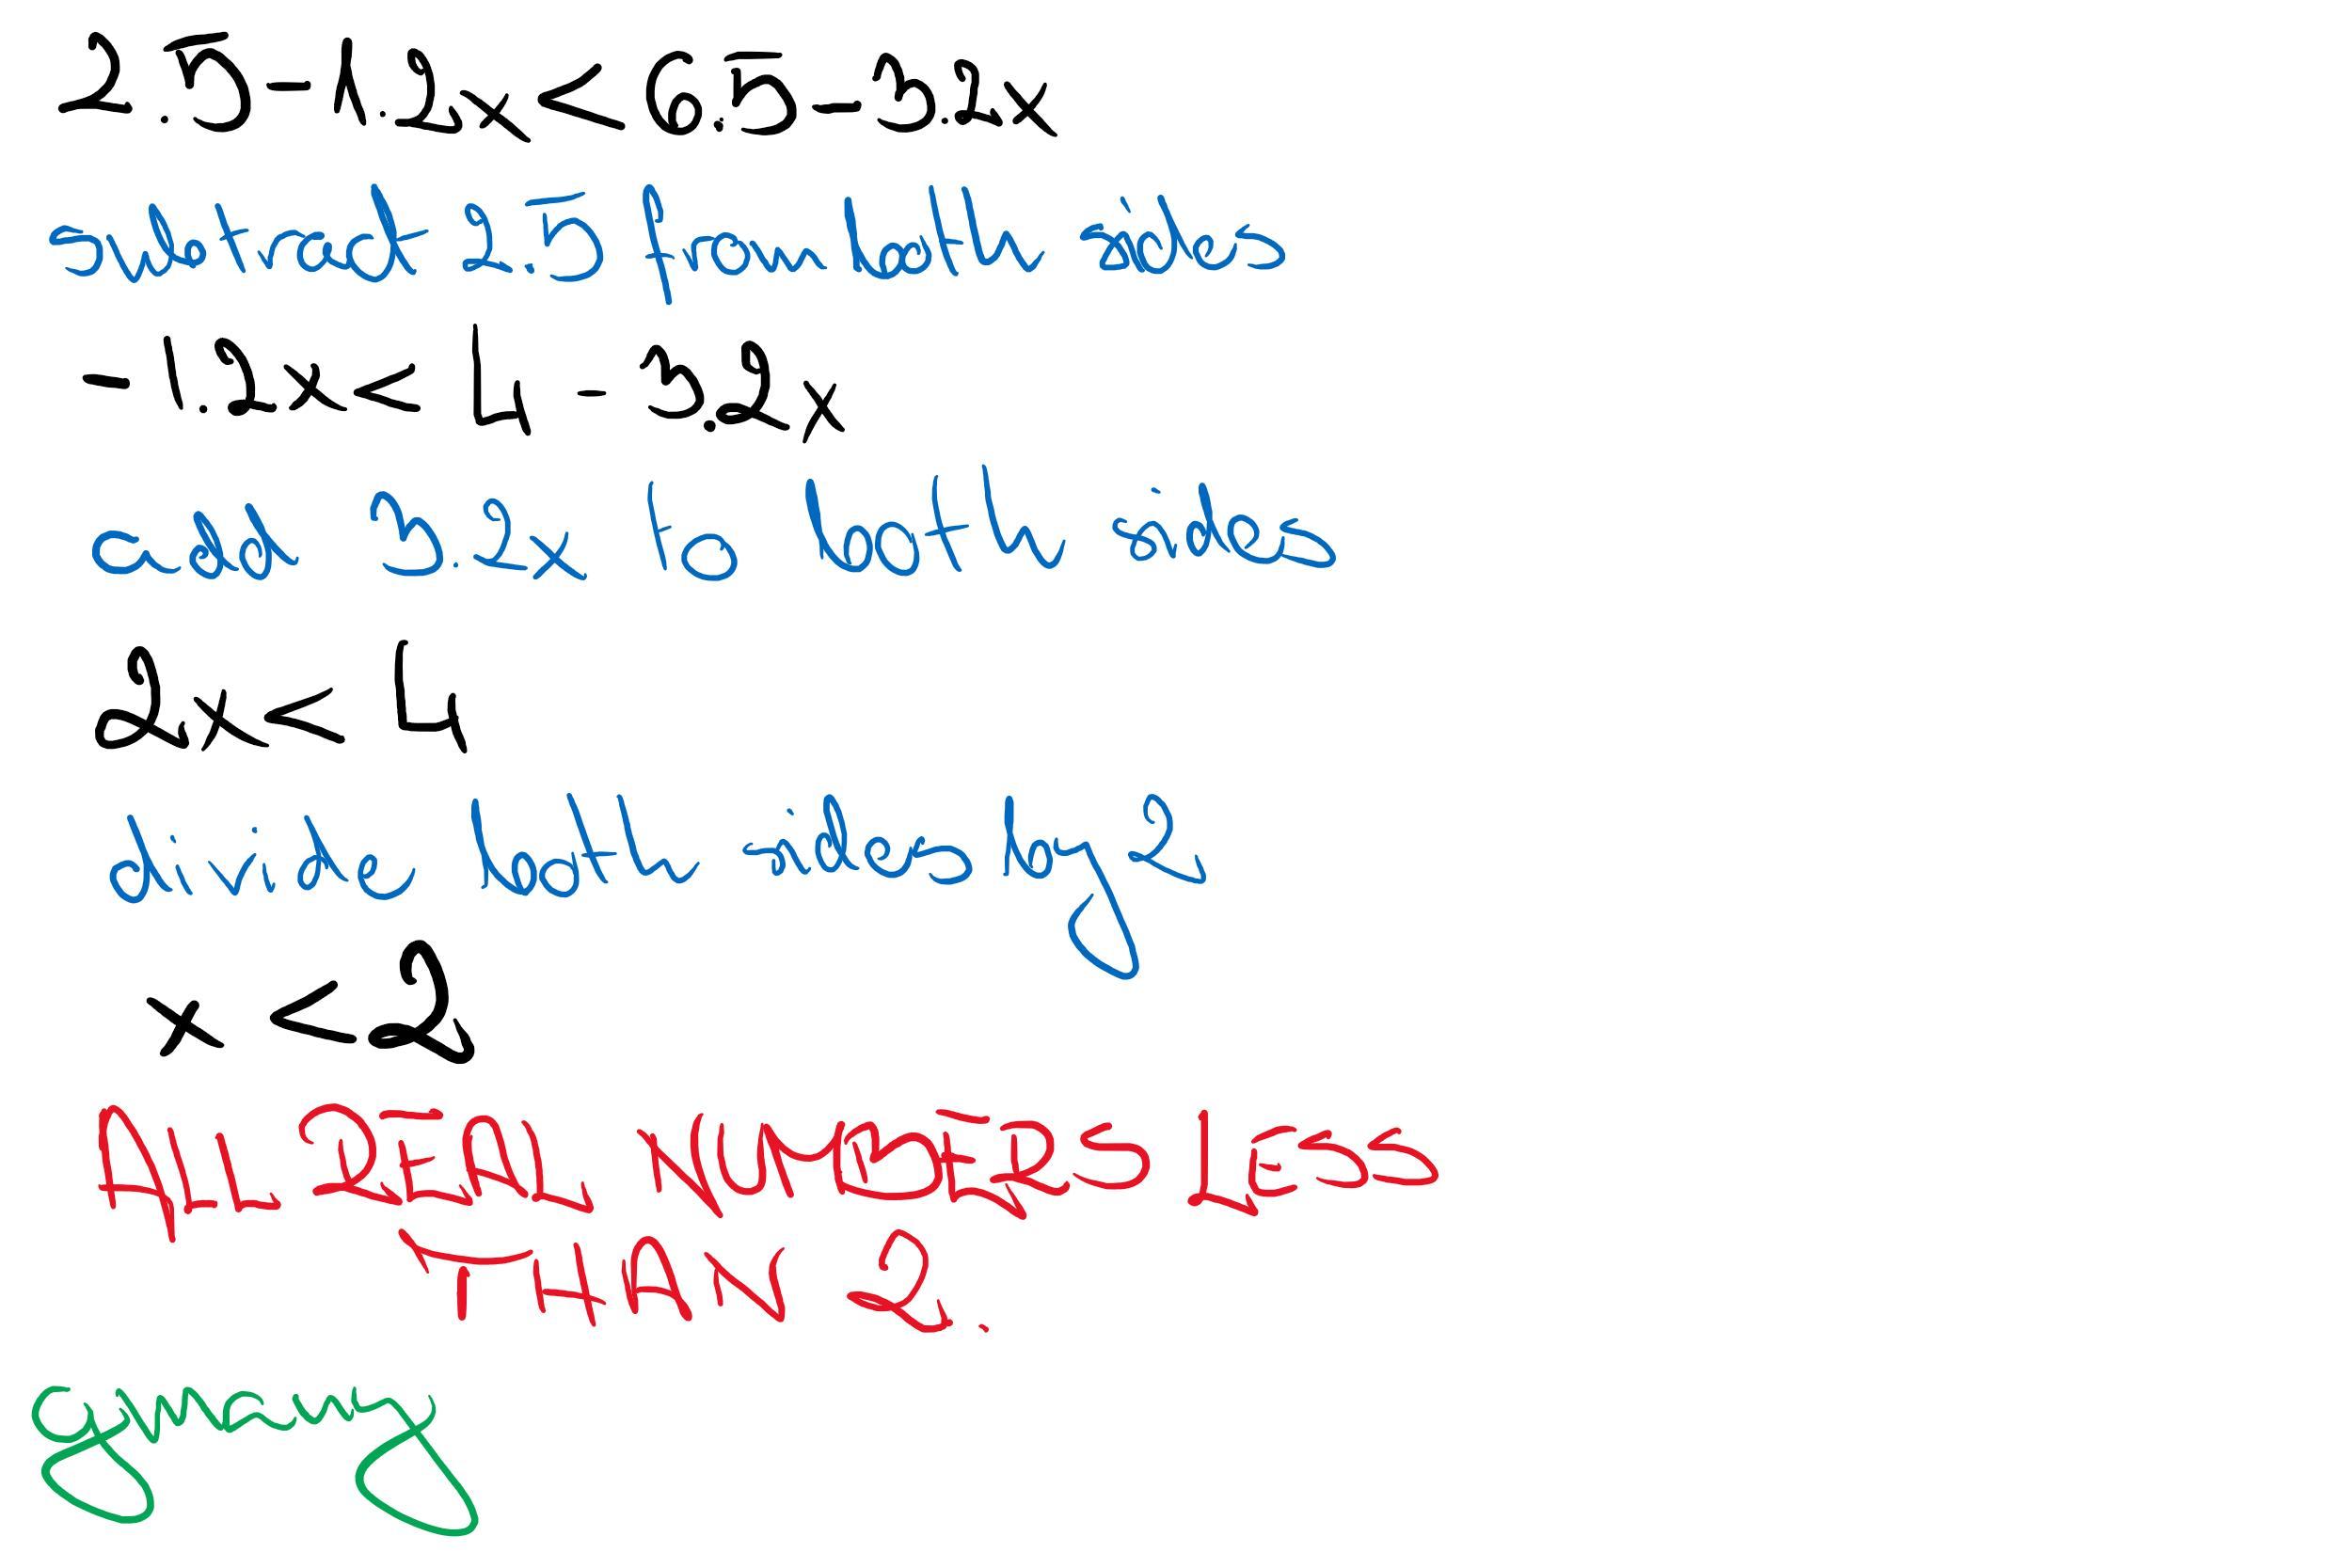 2.5-1.2x<6.5-3.2x
subtract 2.5 from both sides
-1.2x<4-3.2x
add 3.2x to both sides
2x<4
divide both sides by 2
x<2
ALL REAL NUMBERS LESS
THAN 2.